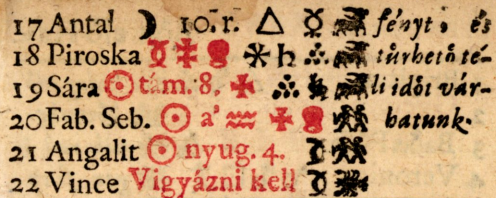 17 Antal ☽ 10. r. △ ☿ fényt, és
18 Piroska ☿ ⚹ ♄ tűrhető té-
19 Sára ☉ tám. 8. li időt vár-
20 Fab. Seb. ☉ a' ♒ hatunk.
21 Angalit ☉ nyug. 4. ☿
22 Vince Vigyázni kell ☿